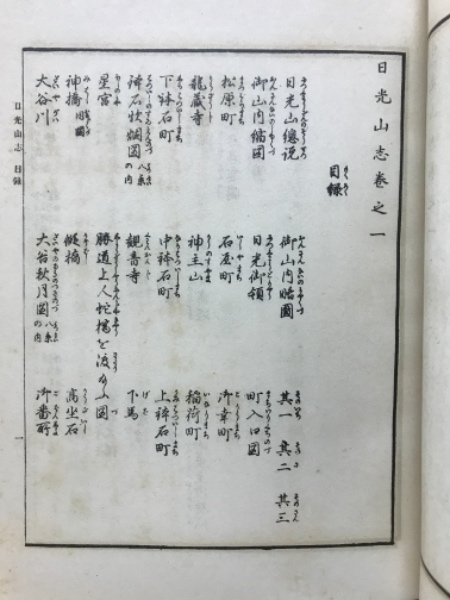 日光山志卷之一
目録
日光山總説 御山内略圖 其一 其二 其三
御山内縮圖 日光御領 町入口圖
松原町 石屋町 御幸町
龍蔵寺 神主山 稲荷町
下鉢石町 中鉢石町 上鉢石町
鉢石炊烟圖 八景の内 観音寺 下馬
星宮 勝道上人蛇橋を渡かふ圖
神橋 同圖 假橋 高坐石
大谷川 大谷秋月圖 八景の内 御番所
日光山志 目録 一